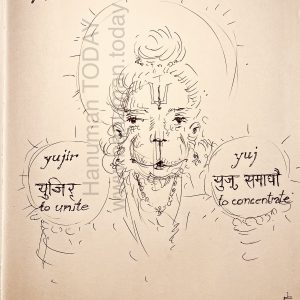 yujir
युजिर्
to unite
yuj
युज् समाधौ
to concentrate
Hanuman TODAY
www.hanuman.today